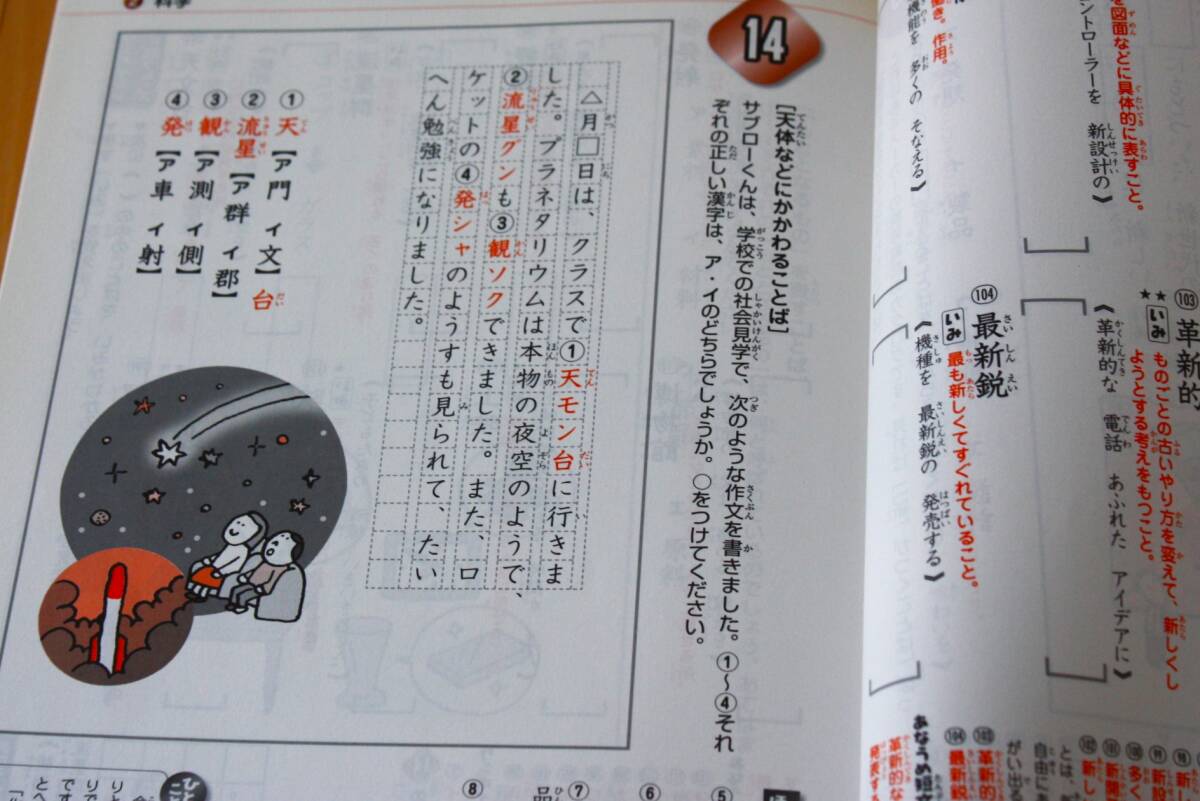 を図面などに具体的に表すこと。
ントローラーを 新設計の
働き。作用。
機能を 多くの そなえる》
103
革新的
★★
いみ
ものごとの古いやり方を変えて、新しくし
ようとする考えをもつこと。
《革新的な 電話 あふれた アイデアに》
104
最新鋭
いみ
最も新しくてすぐれていること。
《機種を 最新鋭の 発売する》
あなうめ短文
科学
14
[天体などにかかわることば]
サブローくんは、学校での社会見学で、次のような作文を書きました。①〜④それ
ぞれの正しい漢字は、ア・イのどちらでしょうか。○をつけてください。
△月□日は、クラスで①天モン台に行きま
した。プラネタリウムは本物の夜空のようで、
②流星グンも③観ソクできました。また、ロ
ケットの④発シャのようすも見られて、たい
へん勉強になりました。
①天【ア門 イ文】台
②流星【ア群 イ郡】
③観【ア測 イ側】
④発【ア車 イ射】
⑤
⑥
⑦
⑧